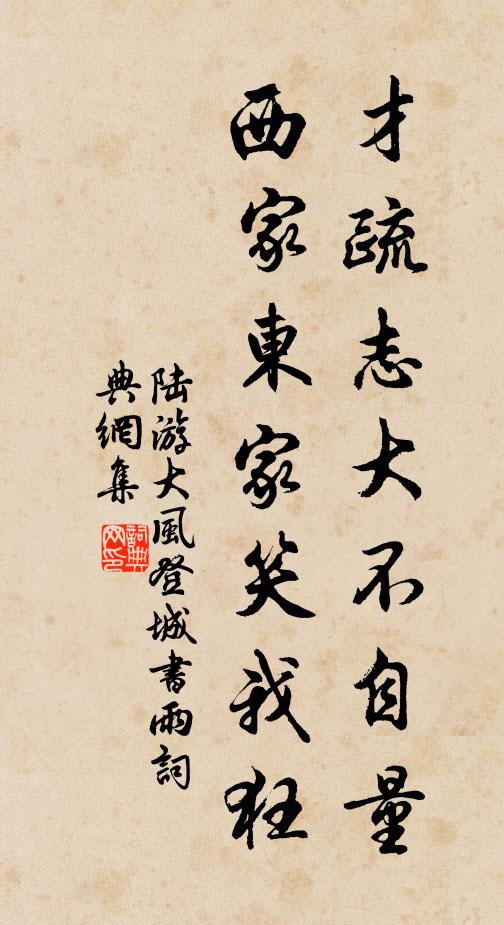 才疏志大不自量
西家東家笑我狂
陸游大風登城書雨詞
典網集
詞典
网印